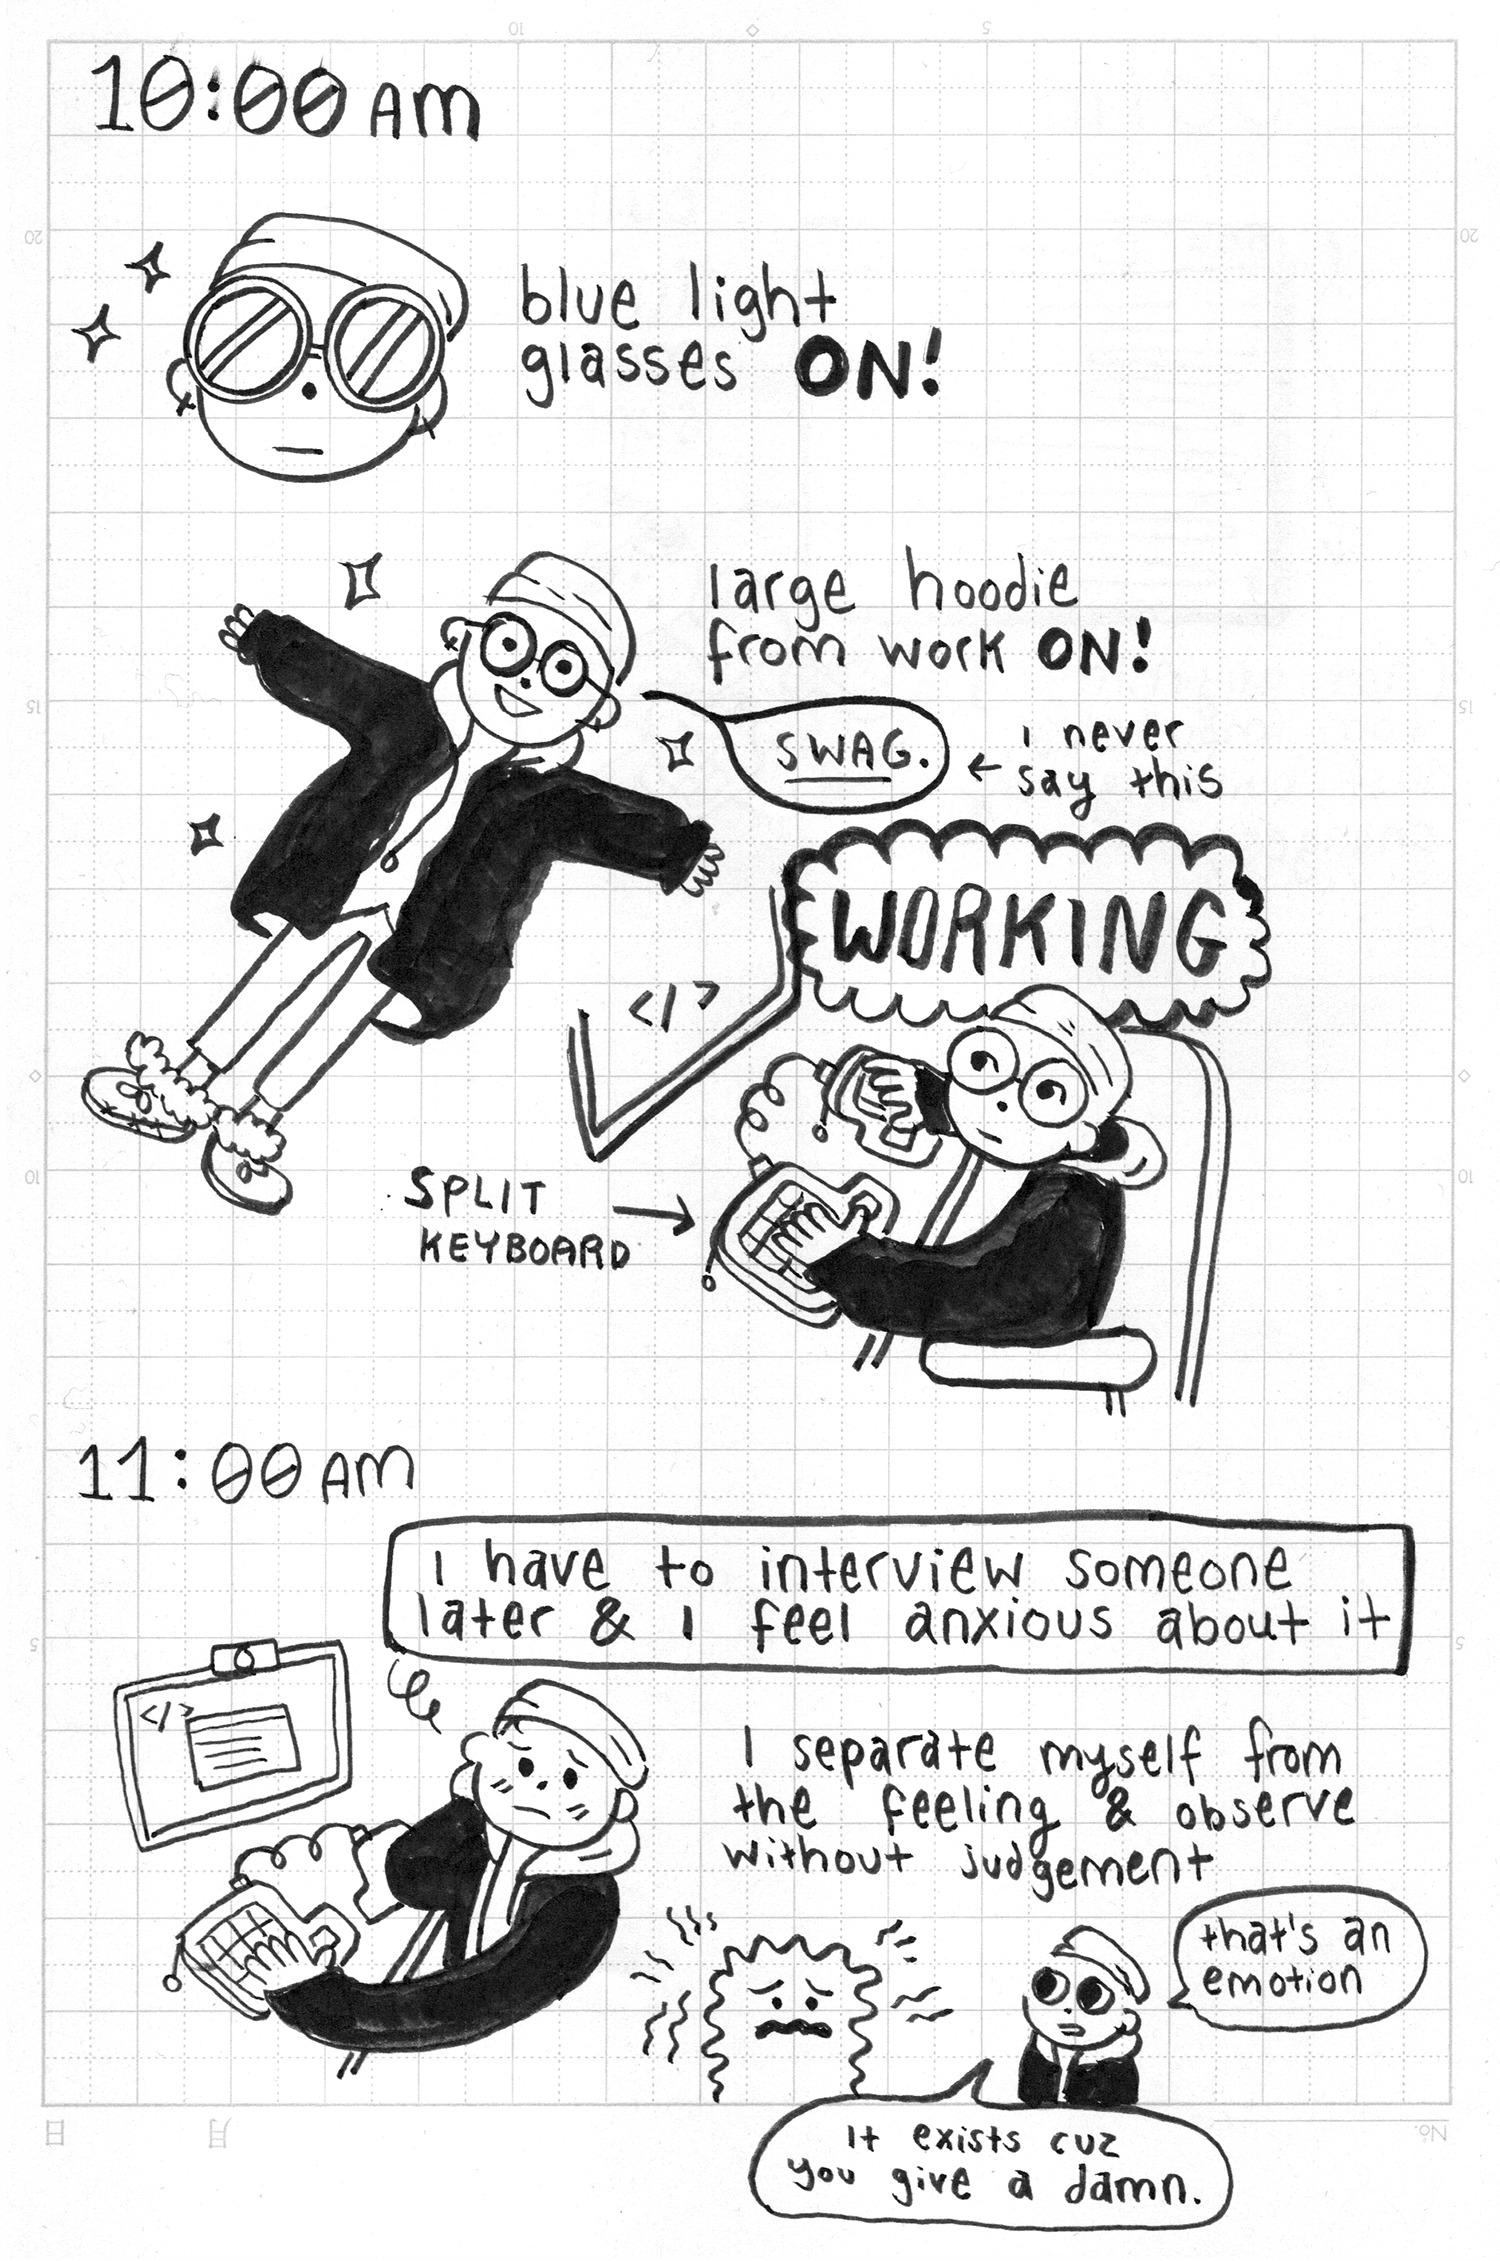 10:00 AM
blue light
glasses ON!
large hoodie
from work ON!
SWAG.
← i never
say this
WORKING
</>
SPLIT
KEYBOARD
11:00 AM
I have to interview someone
later & I feel anxious about it
</>
I separate myself from
the feeling & observe
without judgement
that's an
emotion
It exists cuz
you give a damn.
10
5
20
20
15
15
10
10
5
5
日
月
No.